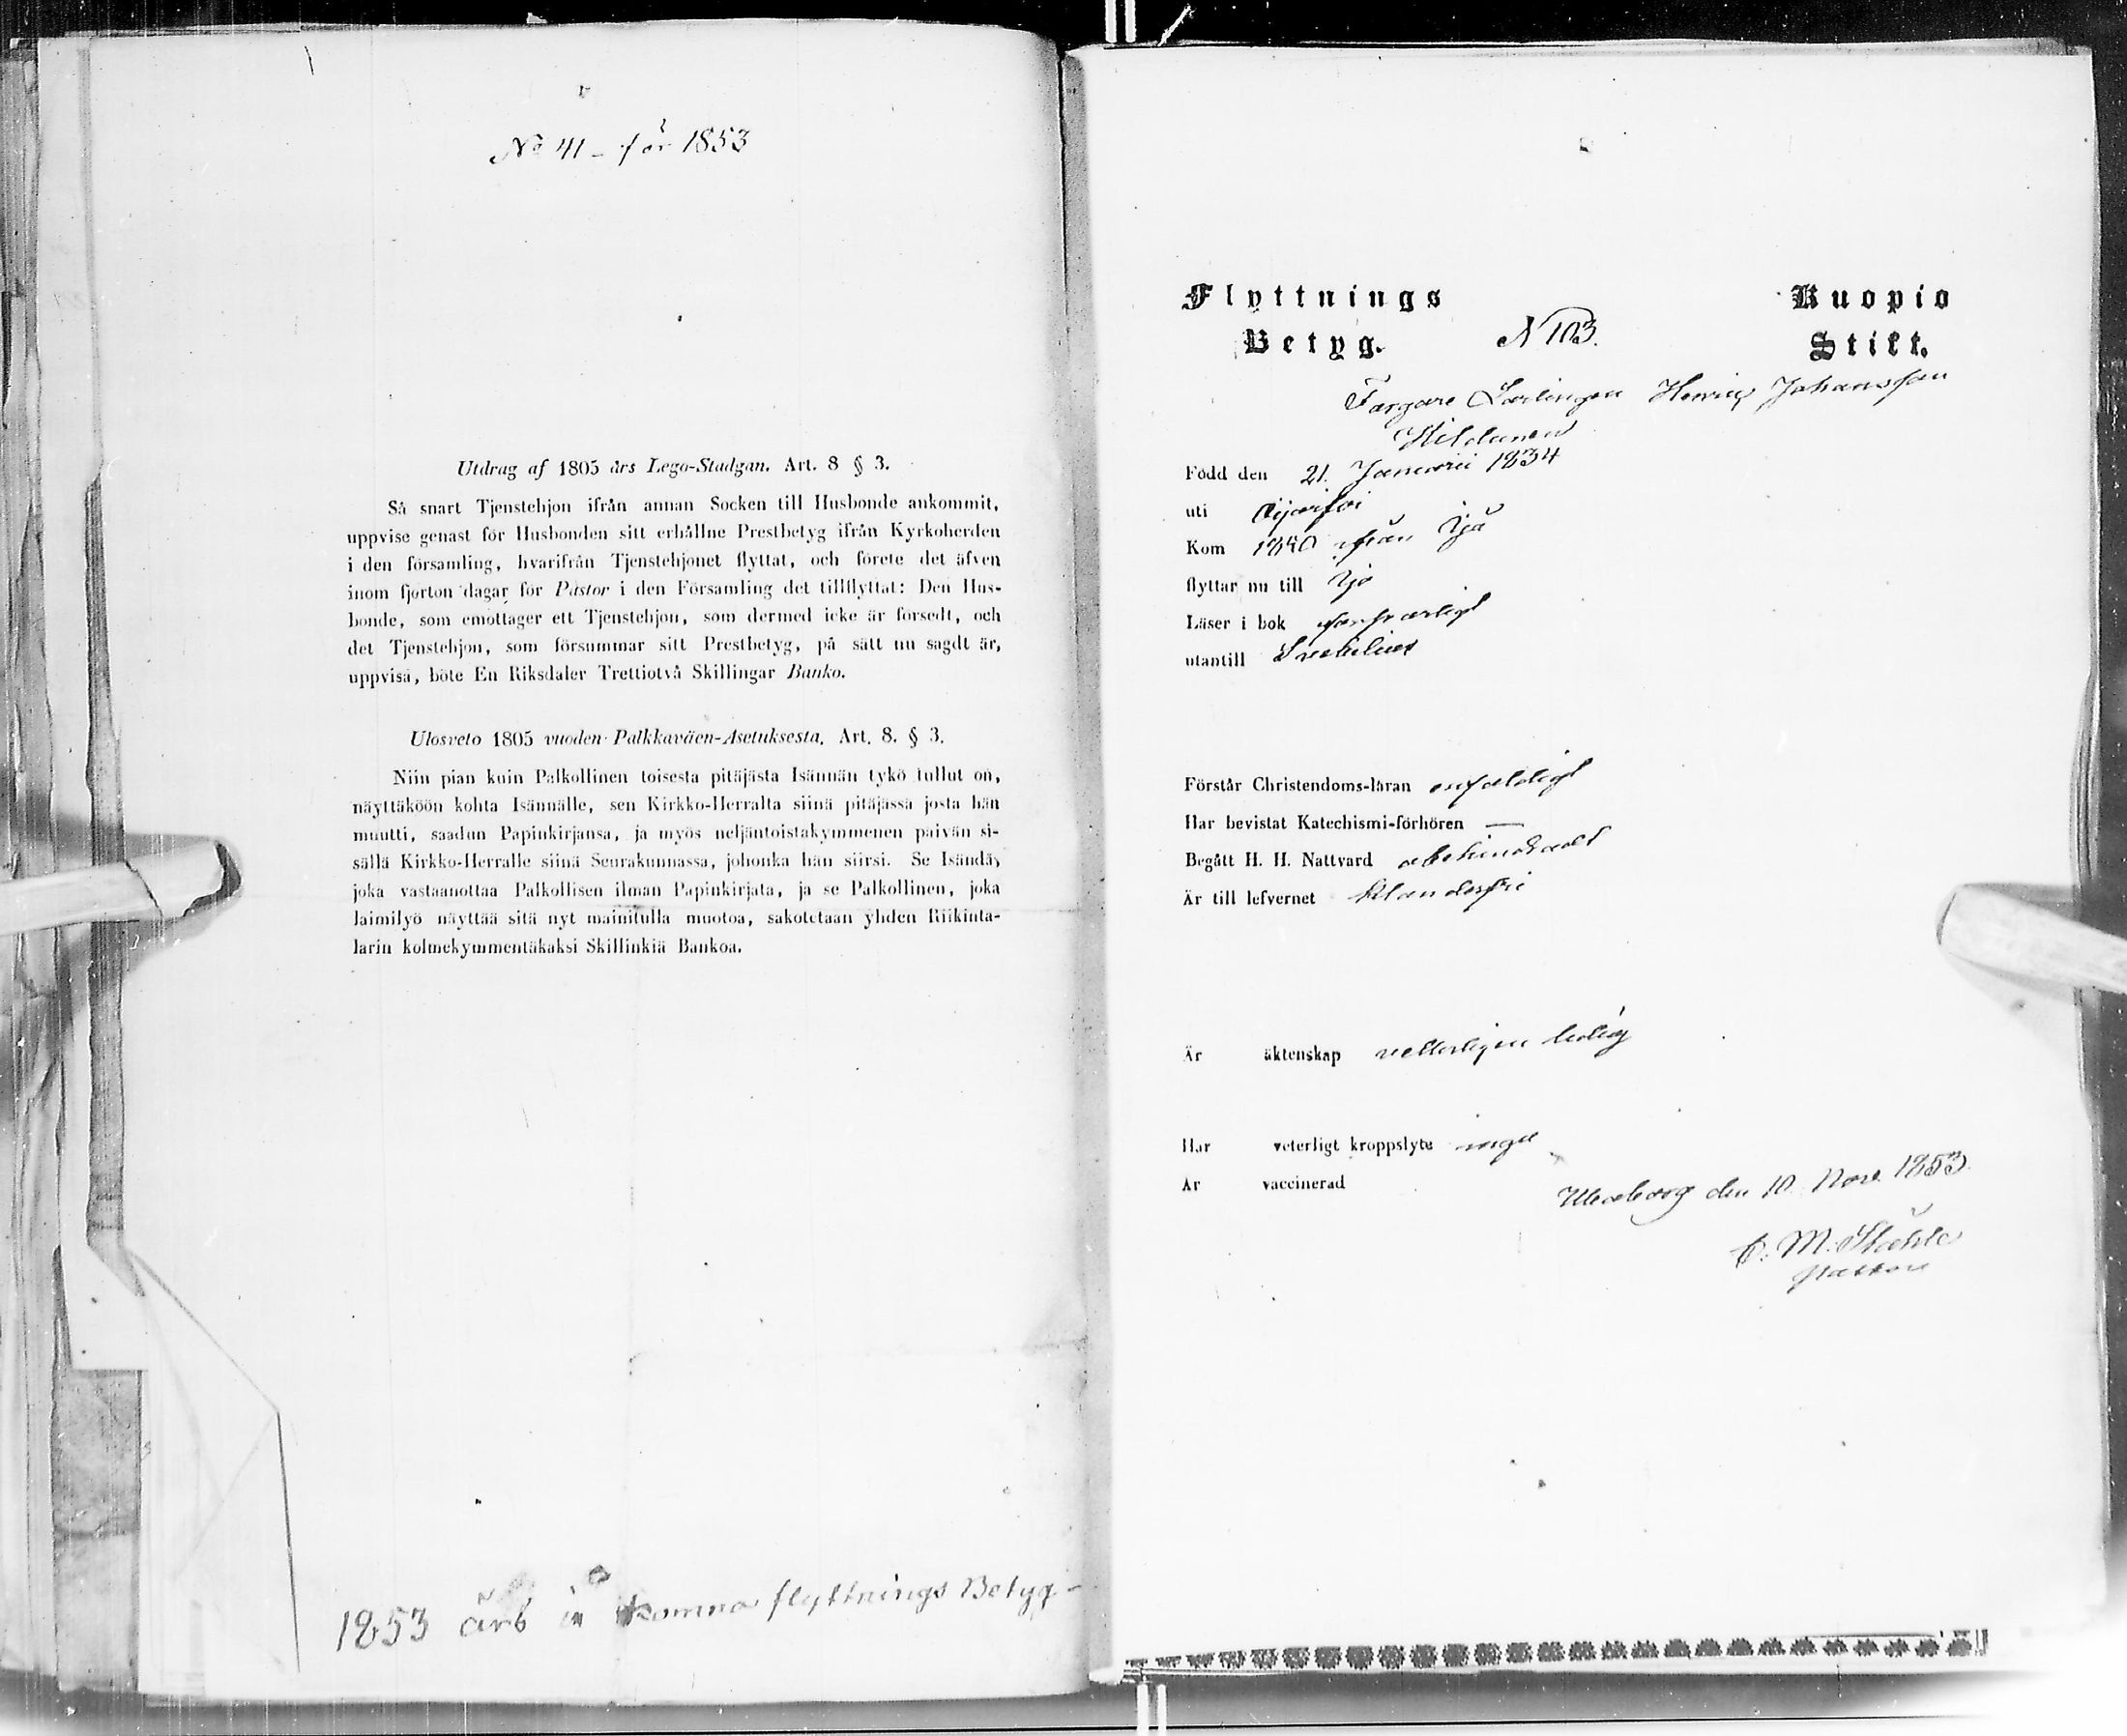 No 41 - för 1853
Utdrag af 1805 års Lego-Stadgan. Art. 8 § 3.
Så snart Tjenstehjon ifrån annan Socken till Husbonde ankommit,
uppvise genast för Husbonden sitt erhållne Prestbetyg ifrån Kyrkoherden
i den församling, hvarifrån Tjenstehjonet flyttat, och förete det äfven
inom fjorton dagar för Pastor i den Församling det tillflyttat: Den Hus-
bonde, som emottager ett Tjenstehjon, som dermed icke är försedt, och
det Tjenstehjon, som försummar sitt Prestbetyg, på sätt nu sagdt är,
uppvisa, böte En Riksdaler Trettiotvå Skillingar Banko.
Ulosveto 1805 vuoden Palkkaväen-Asetuksesta. Art. 8. § 3.
Niin pian kuin Palkollinen toisesta pitäjästa Isännän tykö tullut on,
näyttäköön kohta Isännälle, sen Kirkko-Herralta siinä pitäjässä josta hän
muutti, saadun Papinkirjansa, ja myös neljäntoistakymmenen päivän si-
sällä Kirkko-Herralle siinä Seurakunnassa, johonka hän siirsi. Se Isändä,
joka vastaanottaa Palkollisen ilman Papinkirjata, ja se Palkollinen, joka
laimilyö näyttää sitä nyt mainitulla muotoa, sakotetaan yhden Riikinta-
larin kolmekymmentäkaksi Skillinkiä Bankoa.
1853 års in komna flyttnings Betyg -
Flyttnings
Betyg.
N 103.
Kuopio
Stift.
Färgare Lärlingen Henric Johansson
Född den 21. Januarii 1834
uti
Kom 1840 från Ijo
flyttar nu till Ijo
Läser i bok försvarligt
utantill
Förstår Christendoms-läran enfaldigt
Har bevistat Katechismi-förhören —
Begått H. H. Nattvard obehindradt
Är till lefvernet klanderfri
Är äktenskap vetterligen ledig
Har veterligt kroppslyte inga
Är vaccinerad
Uleåborg den 10 Nov. 1853
C. M. Ståhle
Pastor